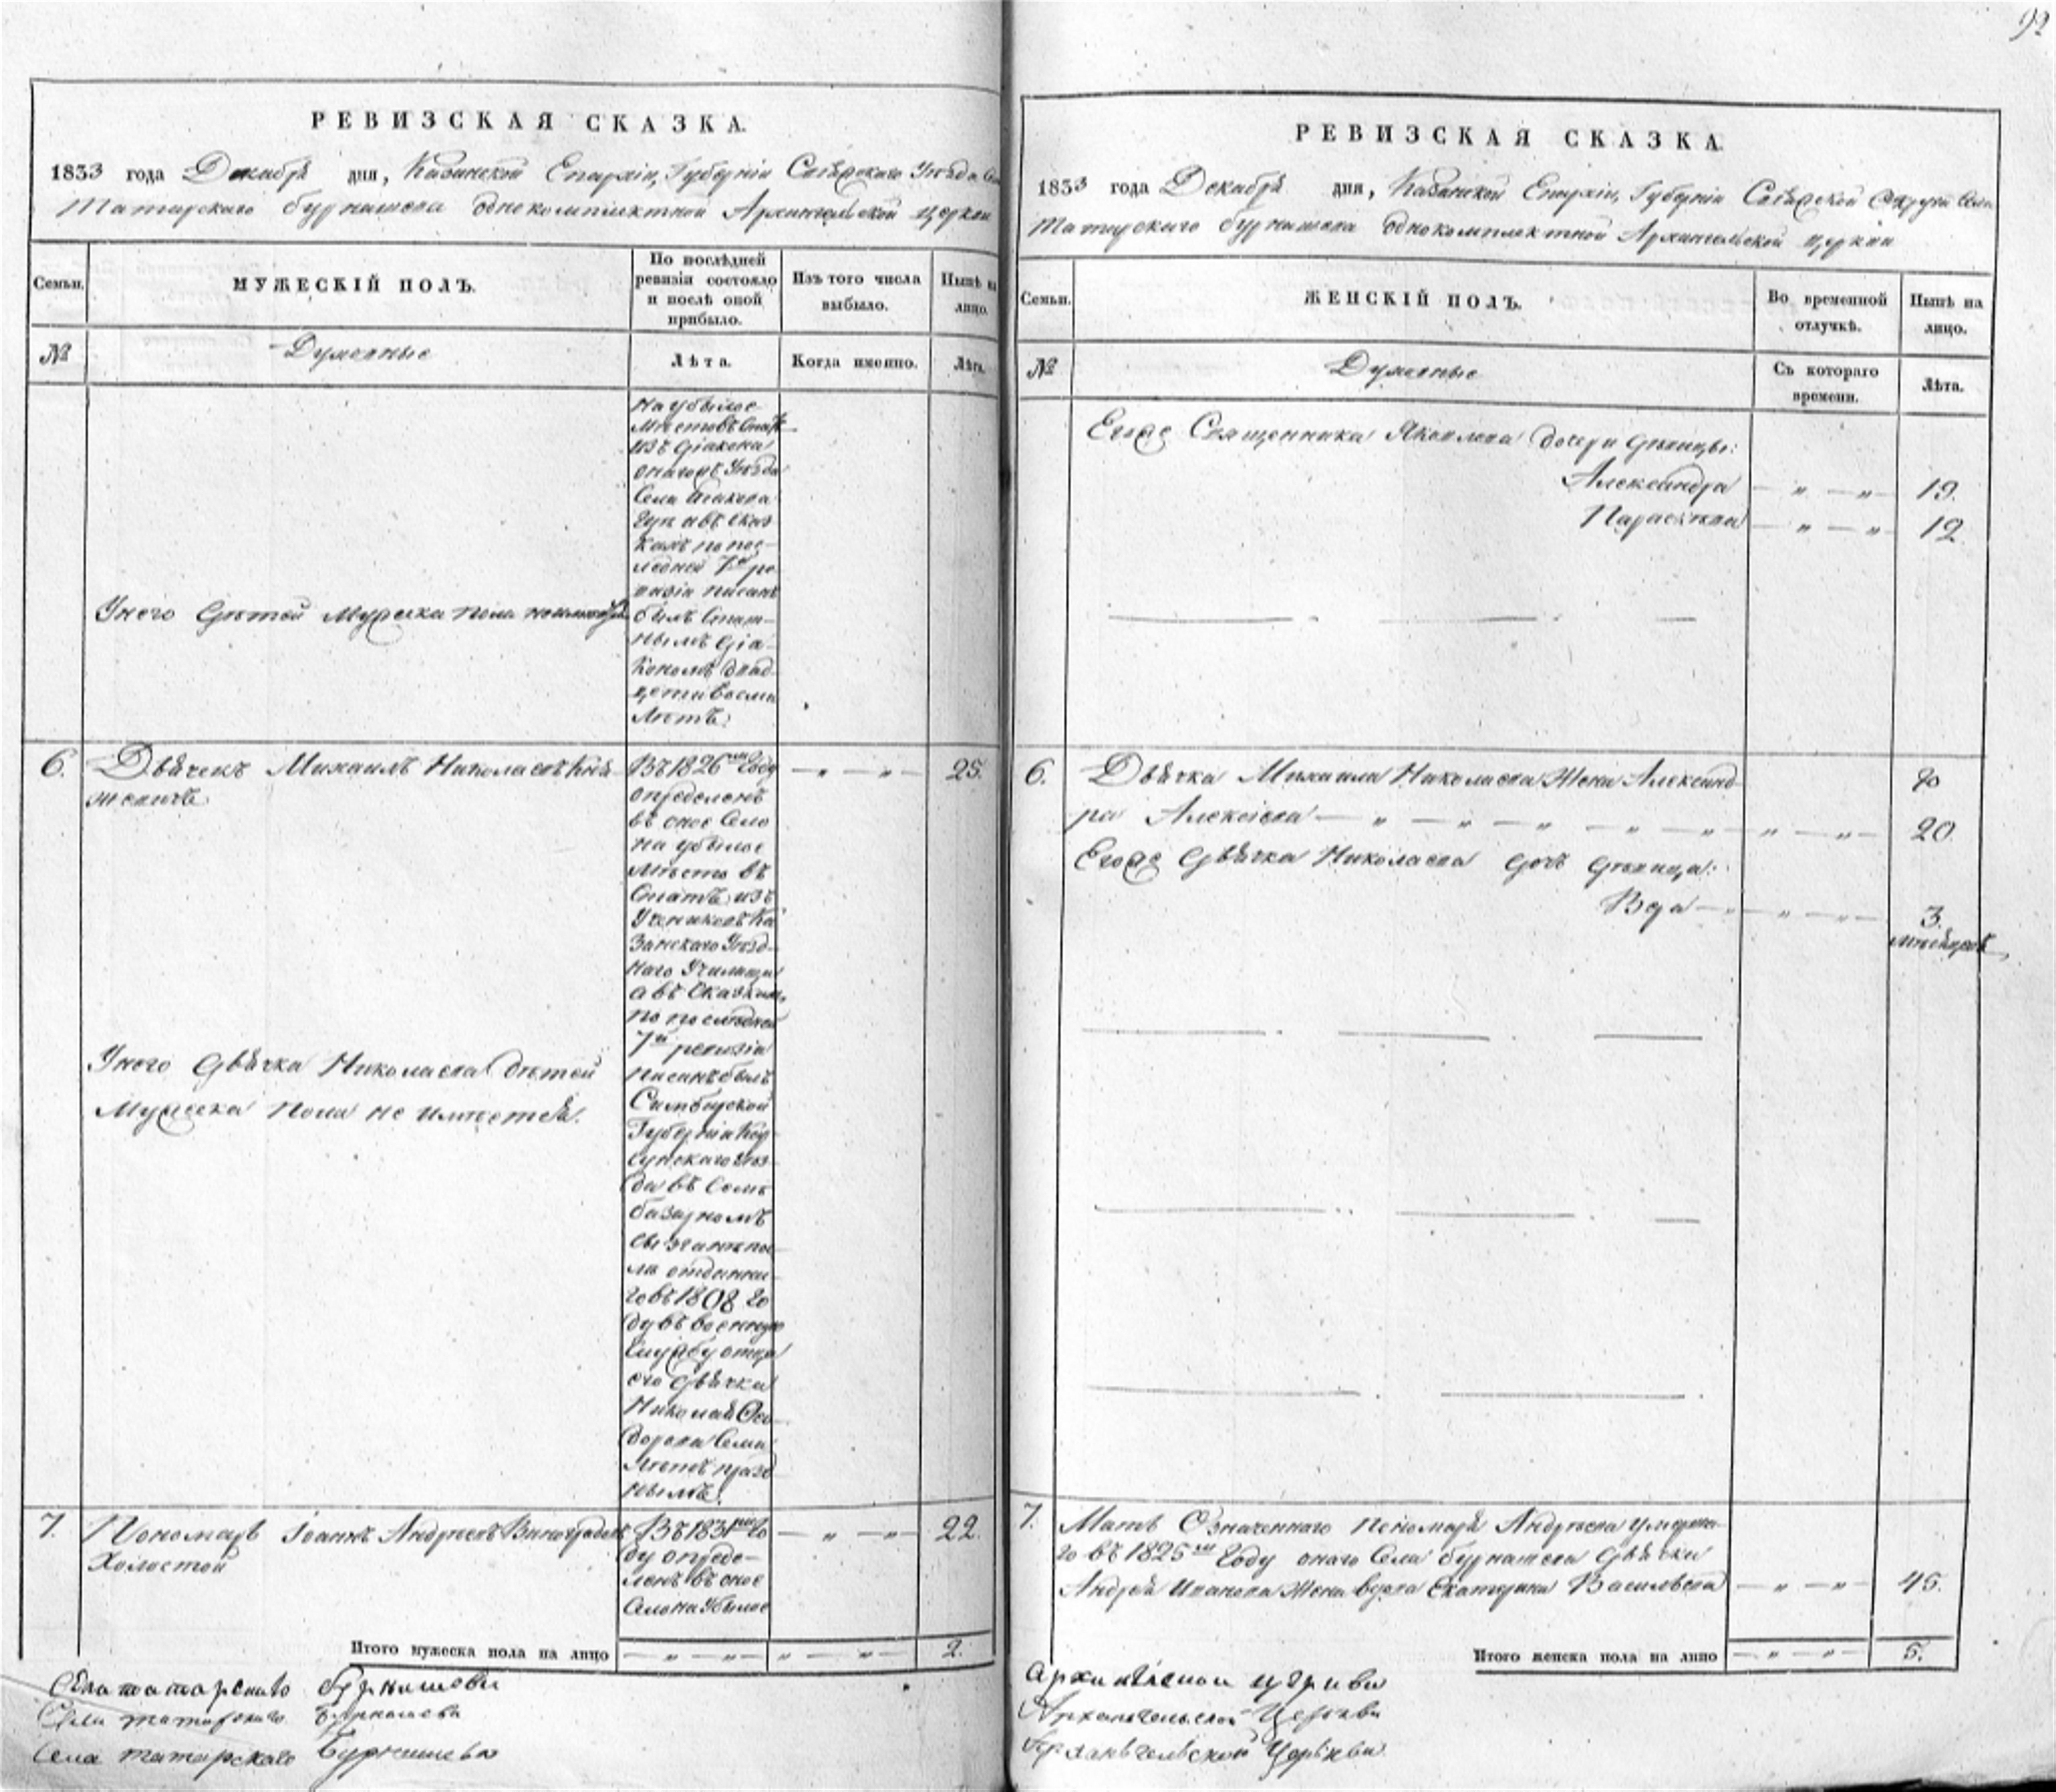 92
РЕВИЗСКАЯ СКАЗКА.
1833 года Декабря дня, Казанской Епархіи, Губерніи Свіяжскаго Уѣзда Села
Татарскаго бурнашева однокомплектной Архангельской церкви
Семьи. МУЖЕСКІЙ ПОЛЪ. По послѣдней ревизіи состояло и послѣ оной прибыло. Изъ того числа выбыло. Нынѣ на лицо.
№ Духовные Лѣта. Когда именно. Лѣта.
на убылое
мѣсто въ Штатъ
изъ діакона
онагожъ Уѣзда
Села
гуп а въ сказ
кахъ по пос-
лѣдней 7й ре
визіи писанъ
былъ Штат-
нымъ діа-
кономъ двад
цати восми
лѣтъ.
У него дѣтей мужеска пола неимеется
6. Дьячекъ Михаилъ Николаевъ 25.
Въ 1826мъ Году
определенъ
въ оное Село
на убылое
мѣсто въ
Штатъ изъ
Учениковъ Ка
занскаго Уѣзд-
наго Училища
а въ Сказкахъ
по последней
7й ревизіи
писанъ былъ
Симбирской
Губерніи Кор
сунскаго уѣз
да въ Селѣ
базарномъ
сызганѣ пос-
ле отданна-
го въ 1808 го
ду въ военную
службу отца
его дьячка
Николая Ѳео
дорова Семи
Лѣтъ празд
нымъ.
У него дьячка Николаева дѣтей
Мужеска пола не имѣется.
7. Пономарь Іоаннъ Андреевъ Виноградовъ 22.
Холостой
Въ 1831мъ Го
ду опреде-
ленъ въ оное
Село на Убылое
Итого мужеска пола на лицо 2.
Села татарскаго бурнашева
Села татарскаго Бурнашева
Села татарскаго Бурнашева
РЕВИЗСКАЯ СКАЗКА.
1833 года Декабря дня, Казанской Епархіи, Губерніи Свіяжской Округи Села
Татарскаго бурнашева однокомплектной Архангельской церкви
Семьи. ЖЕНСКІЙ ПОЛЪ. Во временной отлучкѣ. Нынѣ на лицо.
№ Духовные Съ котораго времени. Лѣта.
Егоже Священника Яковлева дочери дѣвицы:
Александра 19.
Параскева 12
6. Дьячка Михаила Николаева Жена Александ-
ра Алексіева 20.
Егоже дьячка Николаева дочь дѣвица:
Вера 3.
7. Мать Означеннаго Пономаря Андреева умерша-
го въ 1825мъ Году онаго Села бурнашева дьячка
Андрея Иванова Жена вдова Екатерина Васильева 45.
Итого женска пола на лицо 5.
архангелской церкви
Архангельской Церкви
Архангельской Церькви